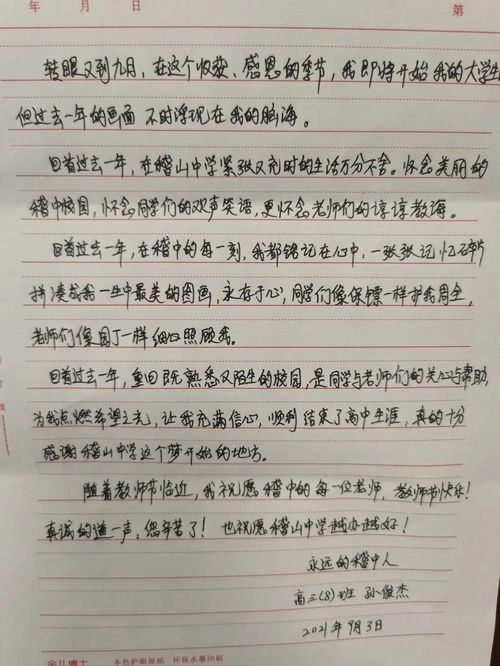 年 月 日 第
转眼又到九月，在这个收获、感恩的季节，我即将开始我的大学生
但过去一年的画面 不时浮现在我的脑海。
回首过去一年，在稽山中学紧张又充时的生活万分不舍。怀念美丽的
稽中校园，怀念同学们的欢声笑语，更怀念老师们的谆谆教诲。
回首过去一年，在稽中的每一刻，我都铭记在心中，一张张记忆碎片
拼凑成我一生中最美的图画，永存于心，同学们像保镖一样护我周全，
老师们像园丁一样细心照顾我。
回首过去一年，重回既熟悉又陌生的校园，是同学与老师们的关心与帮助，
为我点燃希望之光，让我充满信心，顺利结束了高中生涯，真的十分
感谢稽山中学这个梦开始的地方。
随着教师节临近，我祝愿稽中的每一位老师，教师节快乐！
真诚的道一声，您辛苦了！也祝愿稽山中学越办越好！
永远的稽中人
高三(8)班 孙俊杰
2021年9月3日
本色护眼原纸 环保水墨印刷